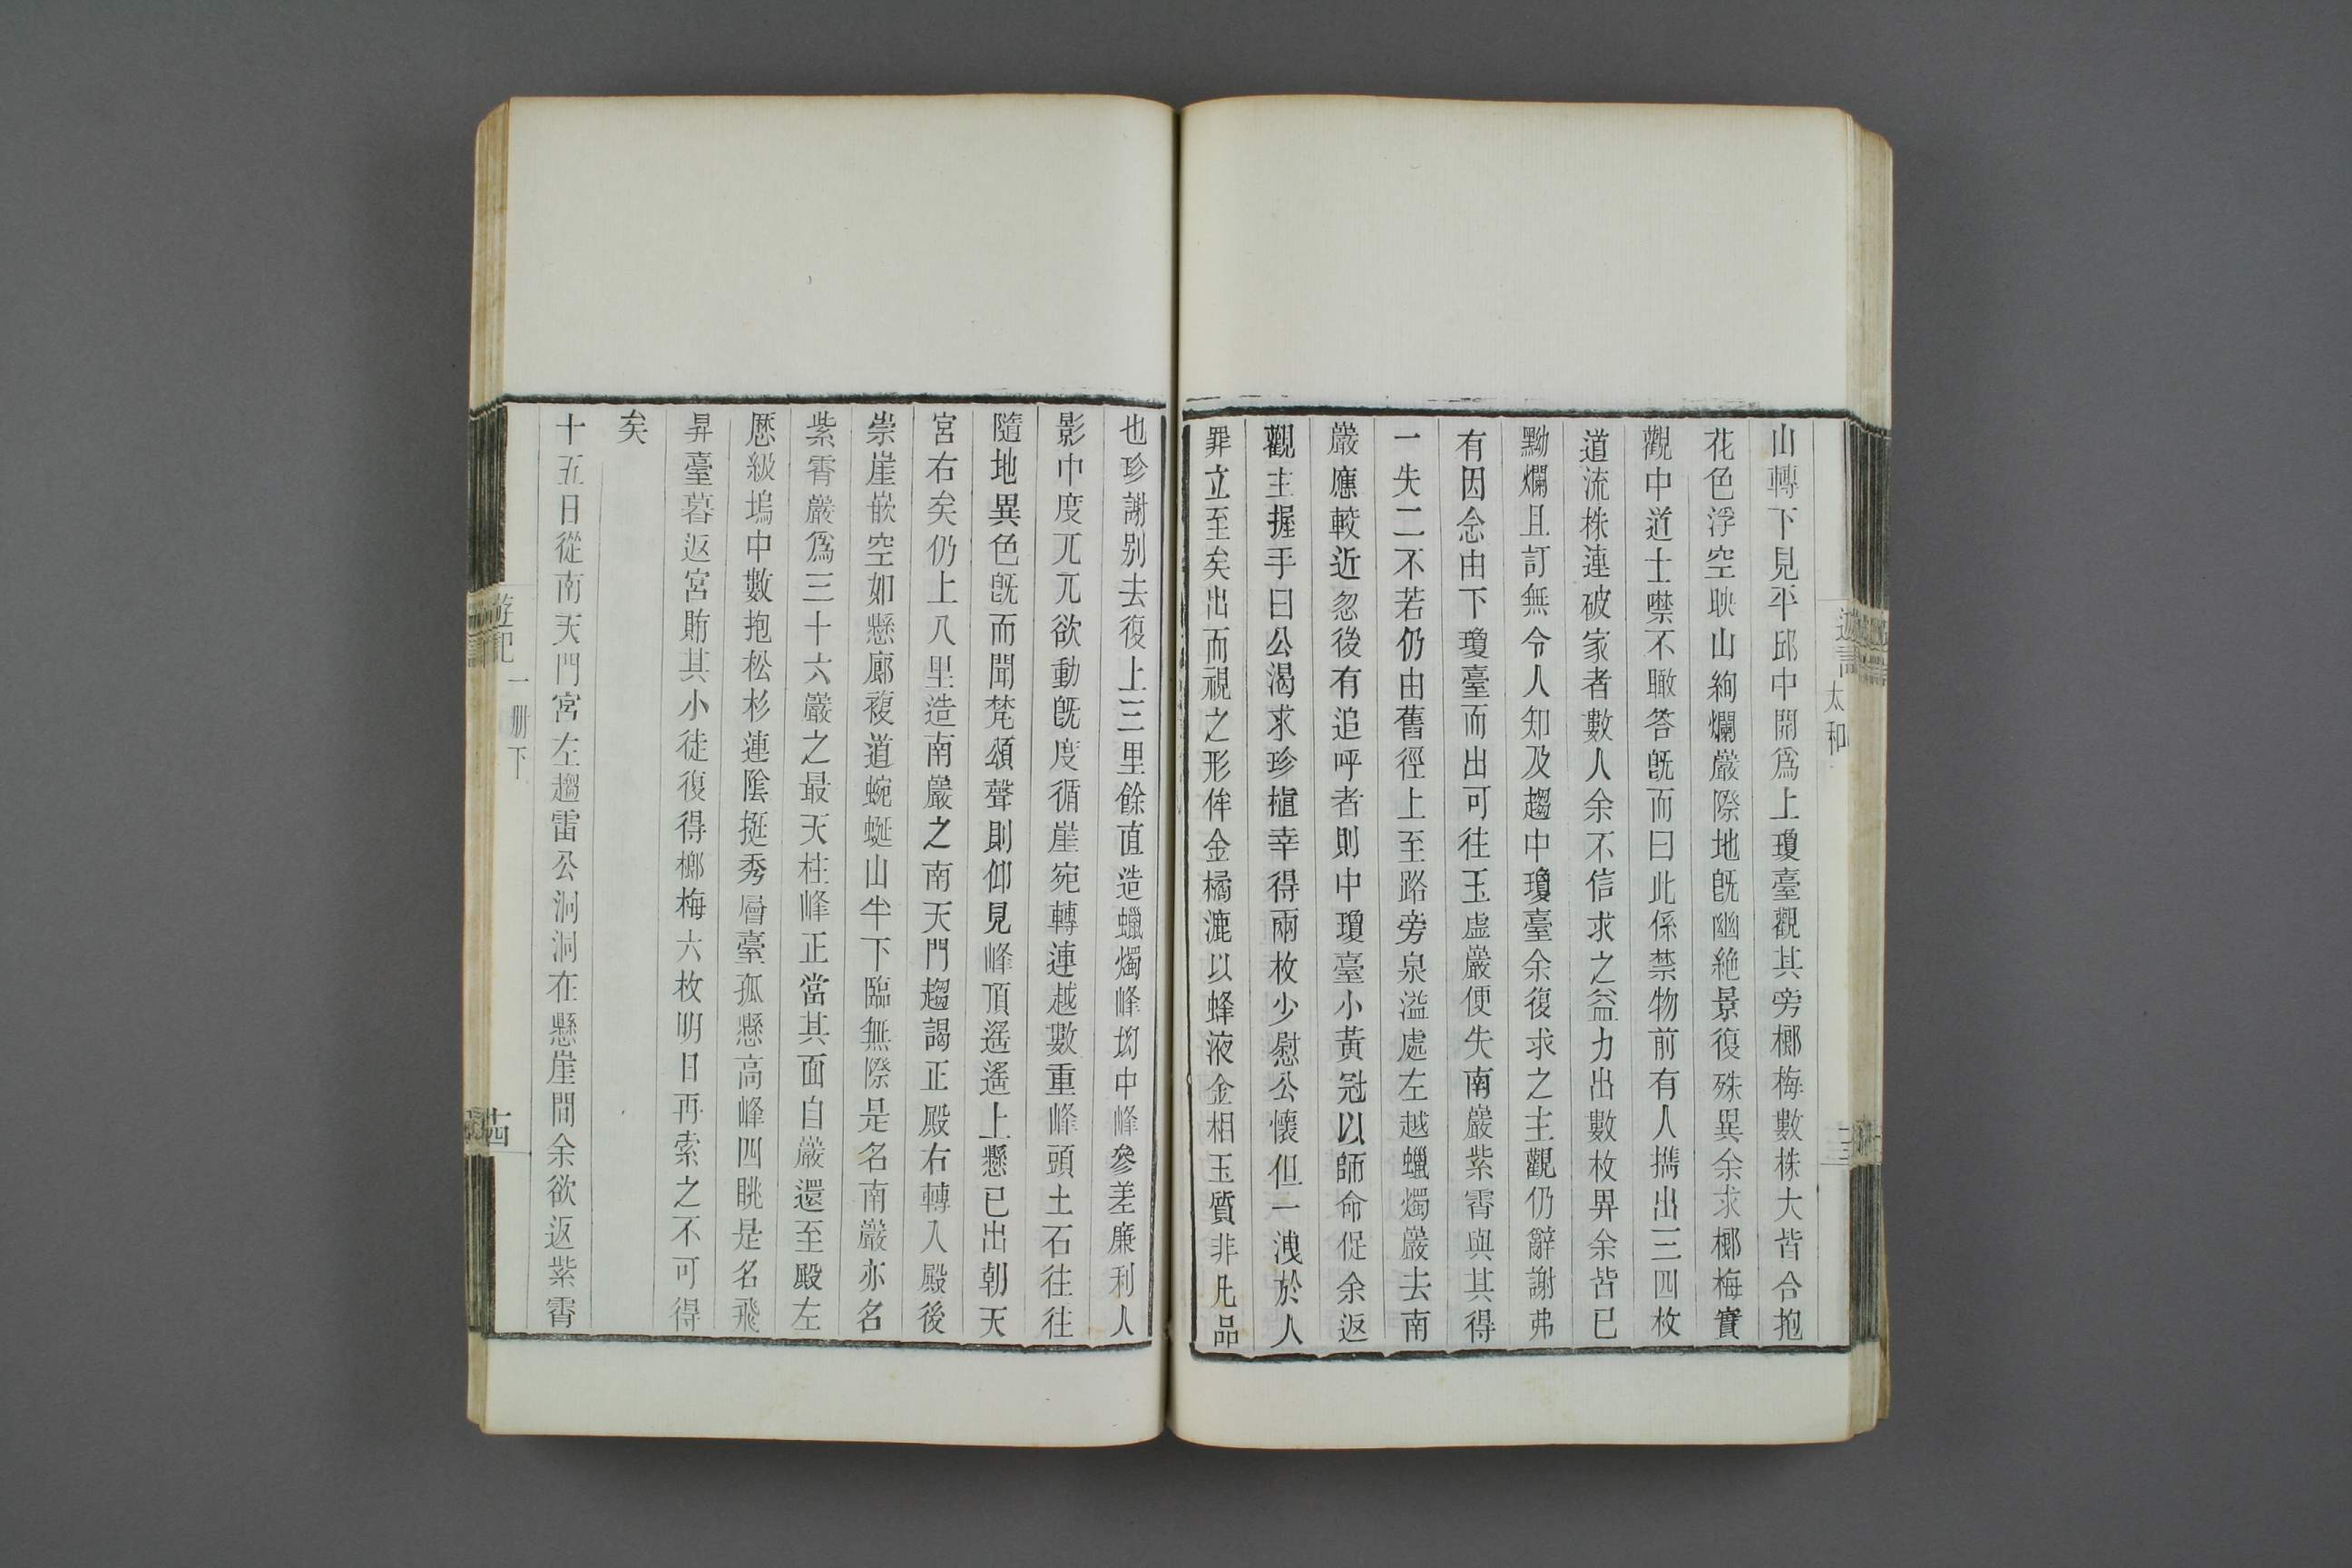 遊記
太和
山轉下見平邱中開爲上瓊臺觀其旁榔梅數株大皆合抱
花色浮空映山絢爛巖際地旣幽絶景復殊異余求榔梅實
觀中道士噤不瞰答旣而曰此係禁物前有人攜出三四枚
道流株連破家者數人余不信求之益力出數枚畀余皆已
黝爛且訂無令人知及趨中瓊臺余復求之主觀仍辭謝弗
有因念由下瓊臺而出可往玉虛巖便失南巖紫霄與其得
一失二不若仍由舊徑上至路旁泉溢處左越蠟燭巖去南
巖應較近忽後有追呼者則中瓊臺小黃冠以師命促余返
觀主握手曰公渴求珍植幸得兩枚少慰公懷但一洩於人
罪立至矣出而視之形侔金橘漉以蜂液金相玉質非凡品
也珍謝别去復上三里餘直造蠟燭峰坳中峰參差廉利人
影中度兀兀欲動旣度循崖宛轉連越數重峰頭土石往往
隨地異色旣而聞梵頌聲則仰見峰頂遙遙上懸已出朝天
宮右矣仍上八里造南巖之南天門趨謁正殿右轉入殿後
崇崖嵌空如懸廊複道蜿蜒山半下臨無際是名南巖亦名
紫霄巖爲三十六巖之最天柱峰正當其面自巖還至殿左
歷級塢中數抱松杉連陰挺秀層臺孤懸高峰四眺是名飛
昇臺暮返宮賄其小徒復得榔梅六枚明日再索之不可得
矣
十五日從南天門宮左趨雷公洞洞在懸崖間余欲返紫霄
遊記
一册下
十四